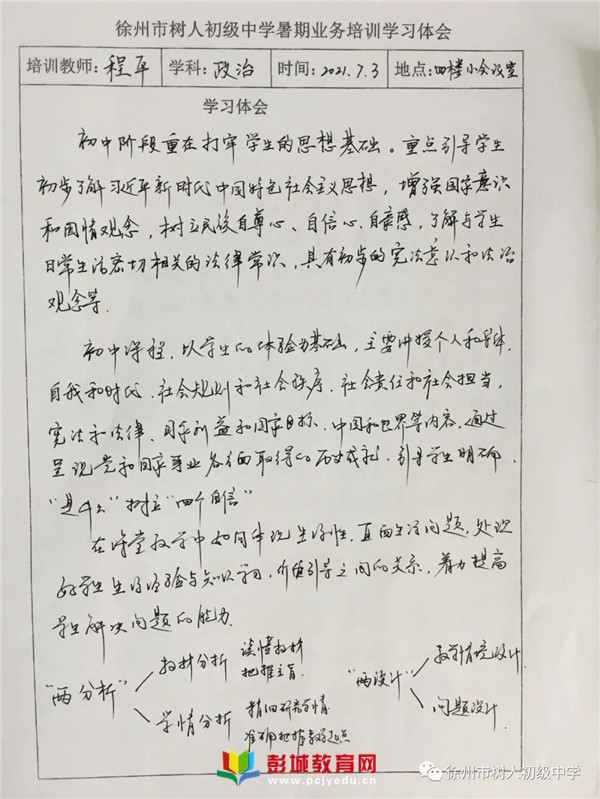 徐州市树人初级中学暑期业务培训学习体会
培训教师：程平 学科：政治 时间：2021.7.3 地点：四楼小会议室
学习体会
初中阶段重在打牢学生的思想基础。重点引导学生
初步了解习近平新时代中国特色社会主义思想，增强国家意识
和国情观念，树立民族自尊心、自信心、自豪感，了解与学生
日常生活密切相关的法律常识，具有初步的宪法意识和法治
观念等.
初中课程，以学生的体验为基础，主要讲授个人和集体.
自我和时代.社会规则和社会秩序.社会责任和社会担当，
宪法和法律、国家利益和国家目标.中国和世界等内容，通过
呈现党和国家事业各方面取得的历史成就.引导学生明确，
“是什么”树立“四个自信”
在课堂教学中如何体现生活性，直面生活问题.处理
好学生生活经验与知识学习，价值引导之间的关系，着力提高
学生解决问题的能力.
“两分析” 教材分析 读懂教材
把握主旨
学情分析 精细研究学情
准确把握教学起点
“两设计” 教学情境设计.
问题设计.
彭城教育网
www.pcjyedu.cn
徐州市树人初级中学